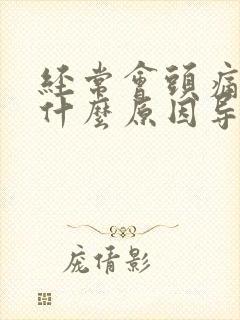 經常會頭痛
什麼原因导
庞倩影